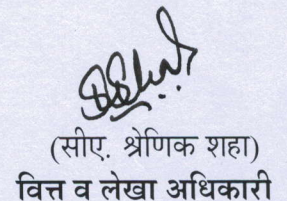 (सीए. श्रेणिक शहा)
वित्त व लेखा अधिकारी